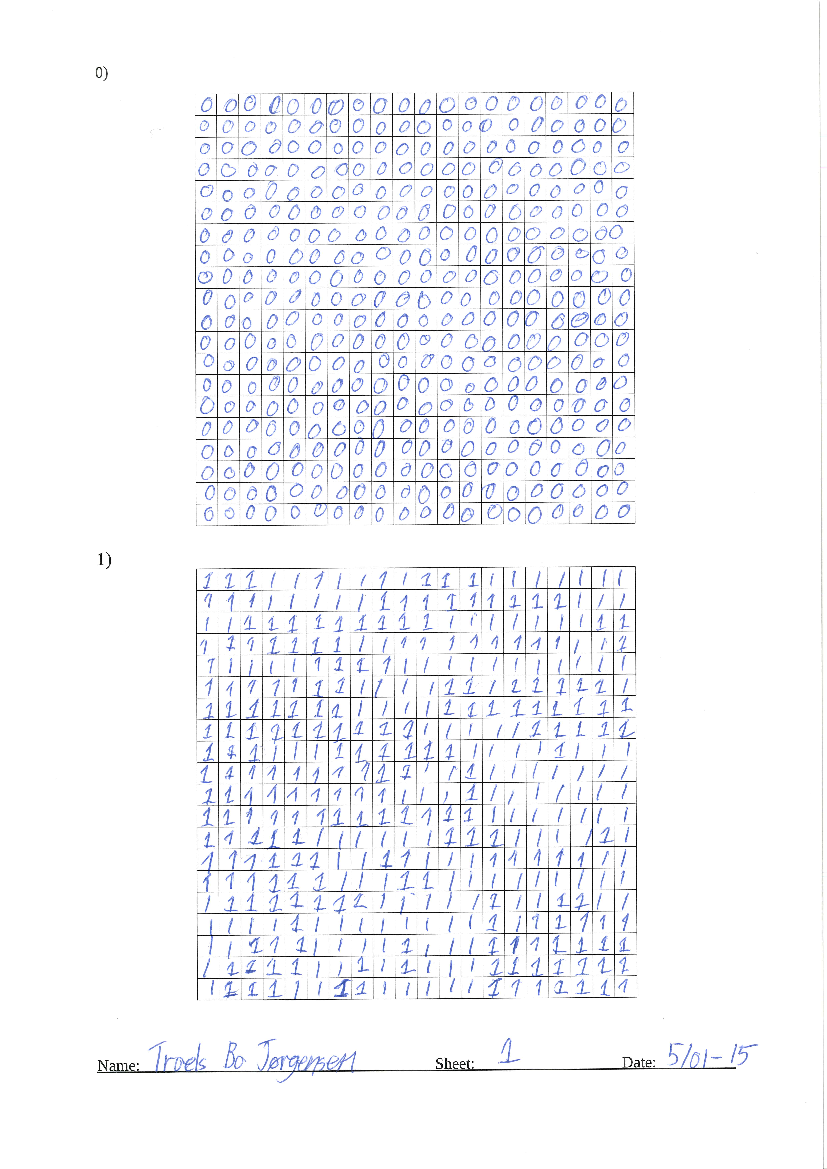 0)
0 0 0 0 0 0 0 0 0 0 0 0 0 0 0 0 0 0 0 0
0 0 0 0 0 0 0 0 0 0 0 0 0 0 0 0 0 0 0 0
0 0 0 0 0 0 0 0 0 0 0 0 0 0 0 0 0 0 0 0
0 0 0 0 0 0 0 0 0 0 0 0 0 0 0 0 0 0 0 0
0 0 0 0 0 0 0 0 0 0 0 0 0 0 0 0 0 0 0 0
0 0 0 0 0 0 0 0 0 0 0 0 0 0 0 0 0 0 0 0
0 0 0 0 0 0 0 0 0 0 0 0 0 0 0 0 0 0 0 0
0 0 0 0 0 0 0 0 0 0 0 0 0 0 0 0 0 0 0 0
0 0 0 0 0 0 0 0 0 0 0 0 0 0 0 0 0 0 0 0
0 0 0 0 0 0 0 0 0 0 0 0 0 0 0 0 0 0 0 0
0 0 0 0 0 0 0 0 0 0 0 0 0 0 0 0 0 0 0 0
0 0 0 0 0 0 0 0 0 0 0 0 0 0 0 0 0 0 0 0
0 0 0 0 0 0 0 0 0 0 0 0 0 0 0 0 0 0 0 0
0 0 0 0 0 0 0 0 0 0 0 0 0 0 0 0 0 0 0 0
0 0 0 0 0 0 0 0 0 0 0 0 0 0 0 0 0 0 0 0
0 0 0 0 0 0 0 0 0 0 0 0 0 0 0 0 0 0 0 0
0 0 0 0 0 0 0 0 0 0 0 0 0 0 0 0 0 0 0 0
0 0 0 0 0 0 0 0 0 0 0 0 0 0 0 0 0 0 0 0
0 0 0 0 0 0 0 0 0 0 0 0 0 0 0 0 0 0 0 0
0 0 0 0 0 0 0 0 0 0 0 0 0 0 0 0 0 0 0 0
1)
1 1 1 1 1 1 1 1 1 1 1 1 1 1 1 1 1 1 1 1
1 1 1 1 1 1 1 1 1 1 1 1 1 1 1 1 1 1 1 1
1 1 1 1 1 1 1 1 1 1 1 1 1 1 1 1 1 1 1 1
1 1 1 1 1 1 1 1 1 1 1 1 1 1 1 1 1 1 1 1
1 1 1 1 1 1 1 1 1 1 1 1 1 1 1 1 1 1 1 1
1 1 1 1 1 1 1 1 1 1 1 1 1 1 1 1 1 1 1 1
1 1 1 1 1 1 1 1 1 1 1 1 1 1 1 1 1 1 1 1
1 1 1 1 1 1 1 1 1 1 1 1 1 1 1 1 1 1 1 1
1 1 1 1 1 1 1 1 1 1 1 1 1 1 1 1 1 1 1 1
1 1 1 1 1 1 1 1 1 1 1 1 1 1 1 1 1 1 1 1
1 1 1 1 1 1 1 1 1 1 1 1 1 1 1 1 1 1 1 1
1 1 1 1 1 1 1 1 1 1 1 1 1 1 1 1 1 1 1 1
1 1 1 1 1 1 1 1 1 1 1 1 1 1 1 1 1 1 1 1
1 1 1 1 1 1 1 1 1 1 1 1 1 1 1 1 1 1 1 1
1 1 1 1 1 1 1 1 1 1 1 1 1 1 1 1 1 1 1 1
1 1 1 1 1 1 1 1 1 1 1 1 1 1 1 1 1 1 1 1
1 1 1 1 1 1 1 1 1 1 1 1 1 1 1 1 1 1 1 1
1 1 1 1 1 1 1 1 1 1 1 1 1 1 1 1 1 1 1 1
1 1 1 1 1 1 1 1 1 1 1 1 1 1 1 1 1 1 1 1
1 1 1 1 1 1 1 1 1 1 1 1 1 1 1 1 1 1 1 1
Name: Troels Bo Jørgensen Sheet: 1 Date: 5/01-15